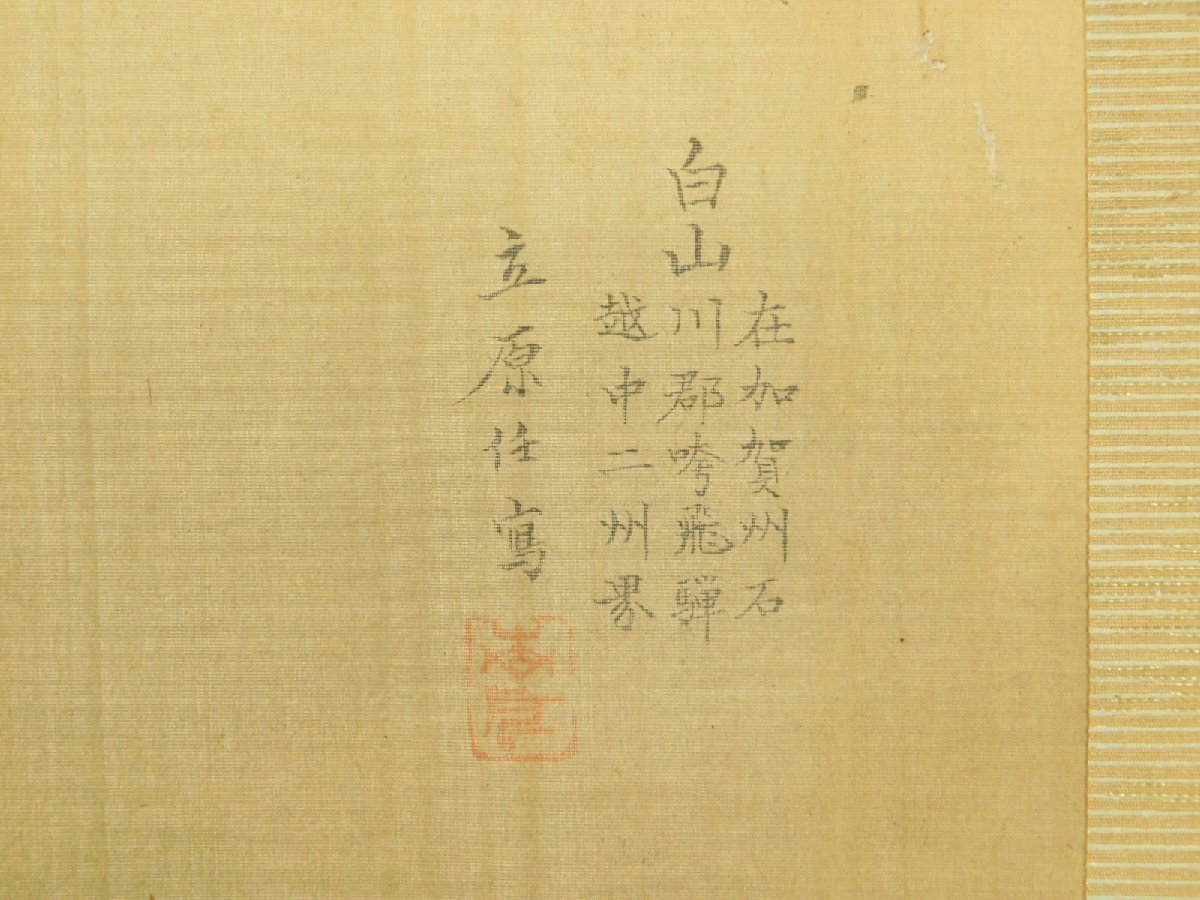 白山
在加賀州石
川郡跨飛騨
越中二州界
立原任寫